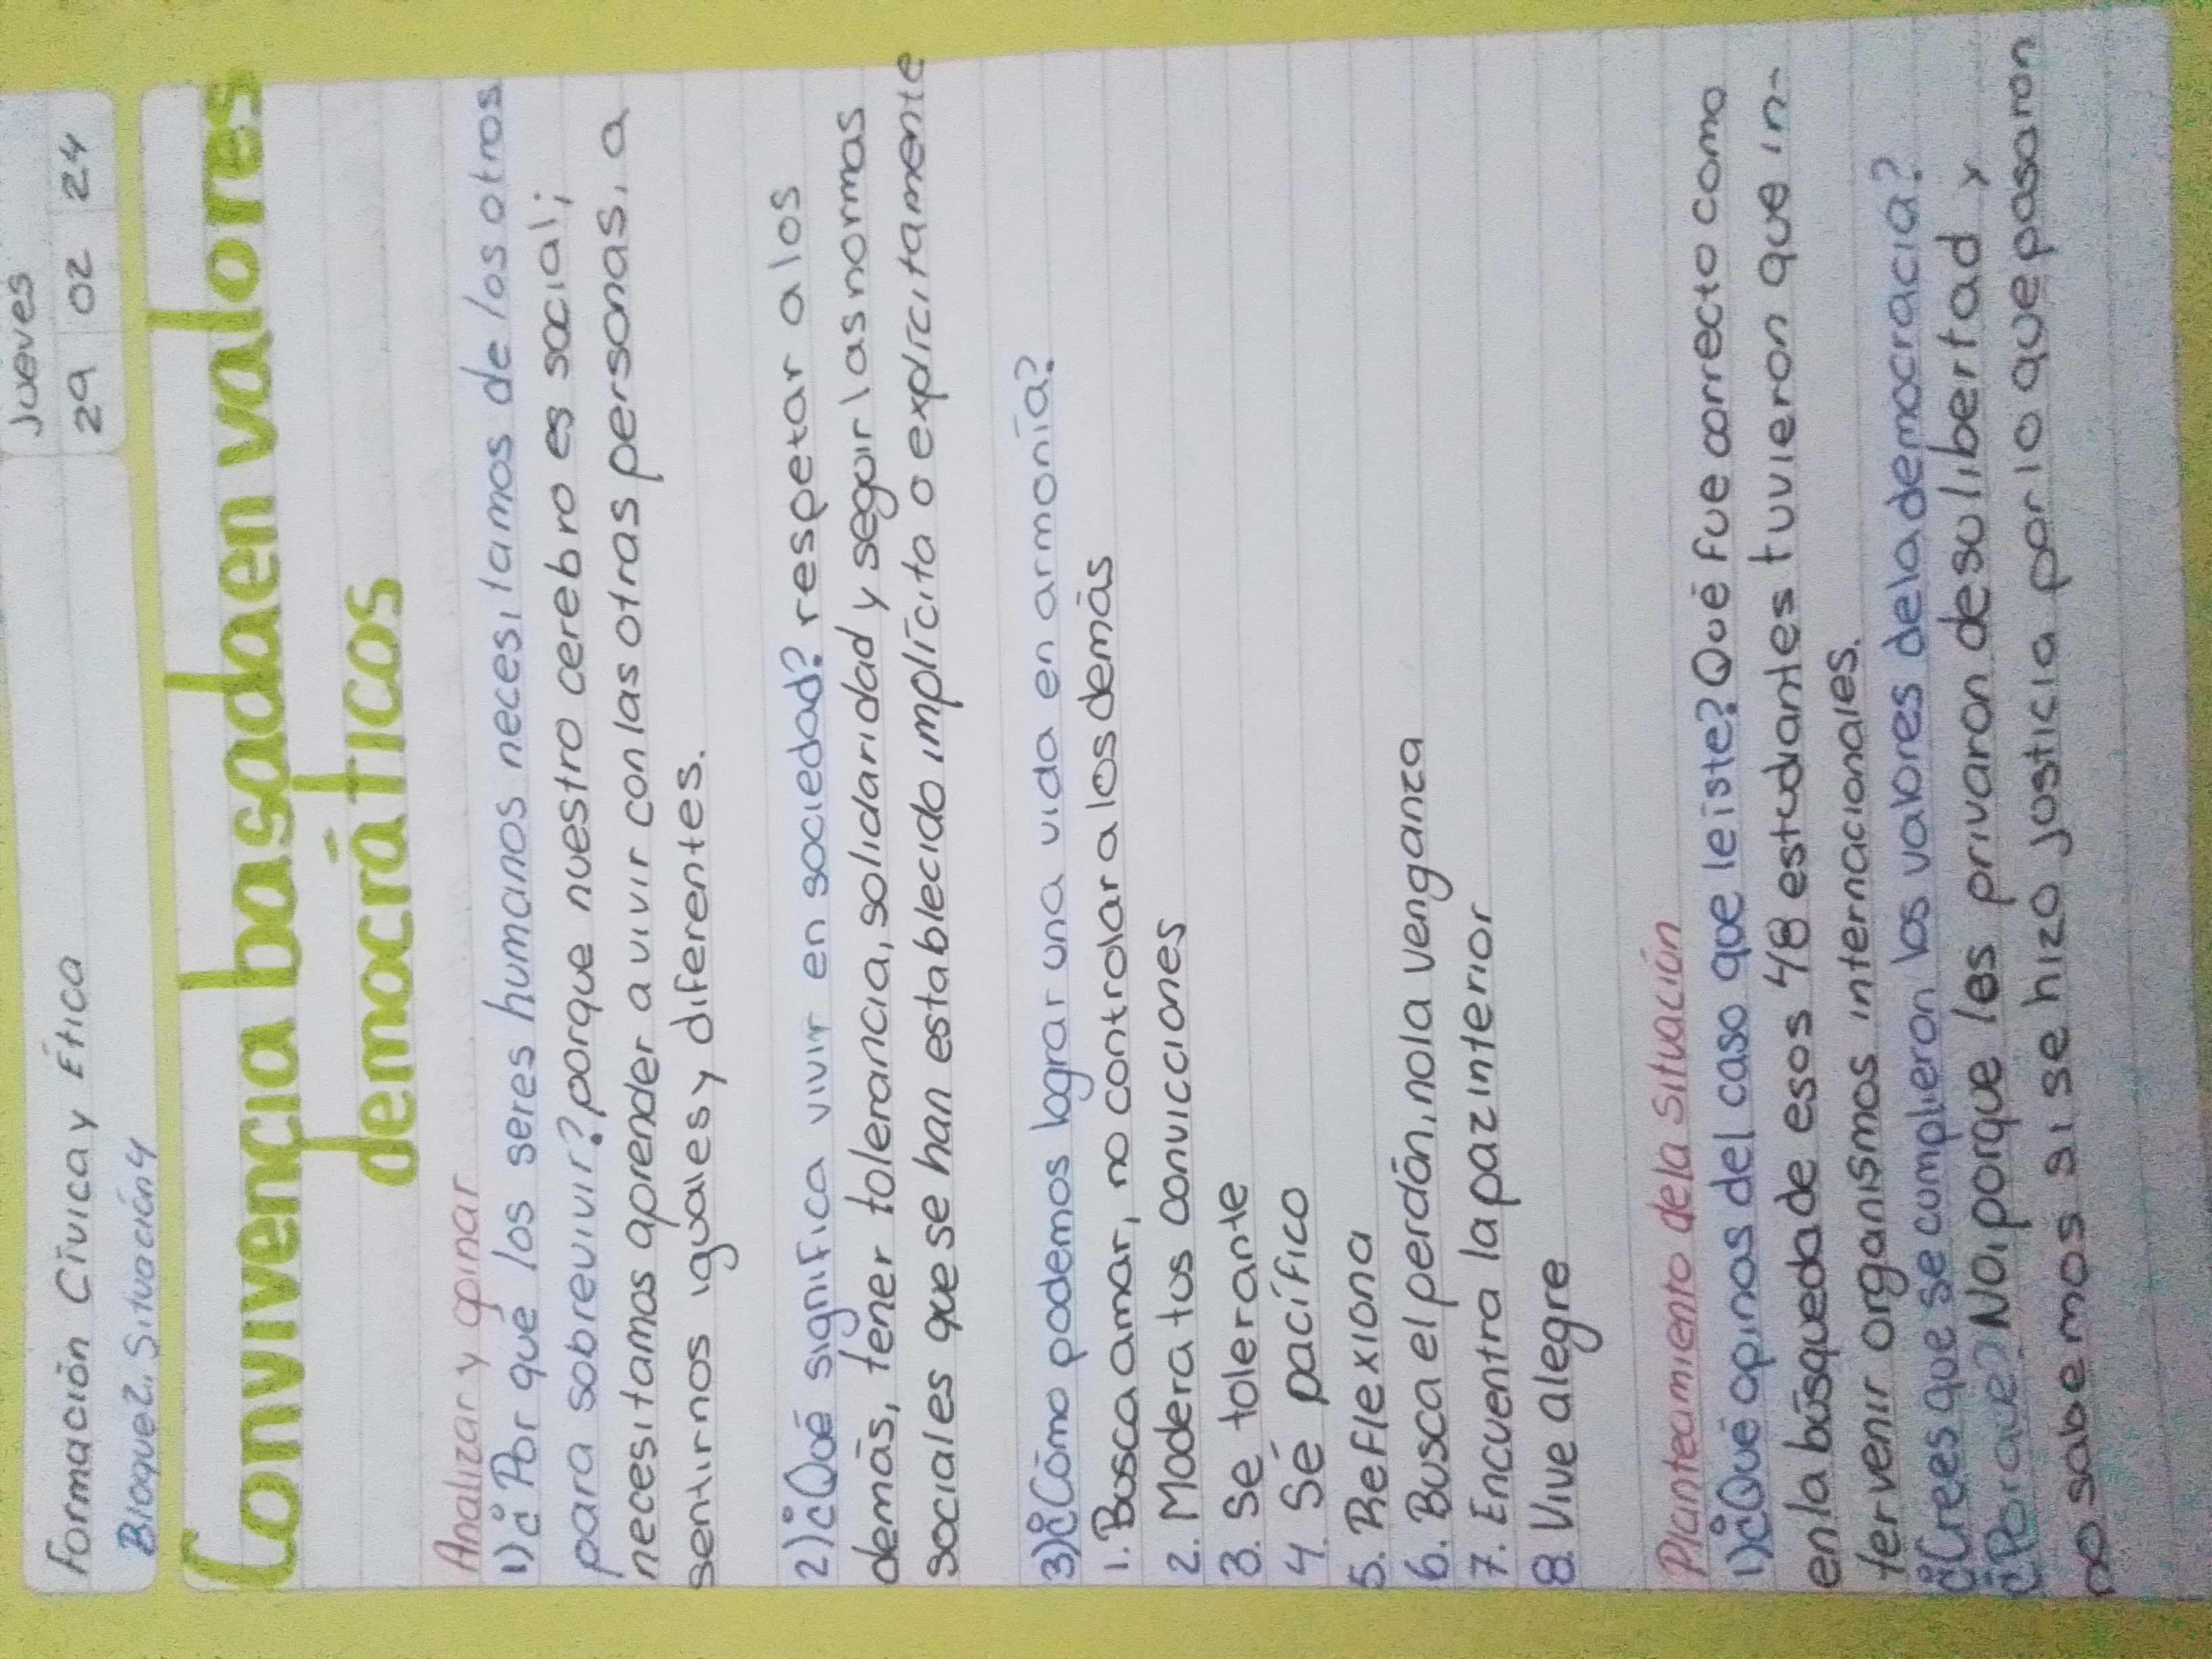 Formación Cívica y Ética
Jueves
29 02 24
Bloque 2, Situación 4
Convivencia basada en valores
democráticos
Analizar y opinar
1) ¿Por qué los seres humanos necesitamos de los otros
para sobrevivir? porque nuestro cerebro es social;
necesitamos aprender a vivir con las otras personas, a
sentirnos iguales y diferentes.
2) ¿Qué significa vivir en sociedad? respetar a los
demás, tener tolerancia, solidaridad y seguir las normas
sociales que se han establecido implícita o explícitamente
3) ¿Cómo podemos lograr una vida en armonía?
1. Busca amar, no controlar a los demás
2. Modera tus convicciones
3. Se tolerante
4. Sé pacífico
5. Reflexiona
6. Busca el perdón, no la venganza
7. Encuentra la paz interior
8. Vive alegre
Planteamiento de la situación
1) ¿Qué opinas del caso que leíste? Qué fue correcto como
en la búsqueda de esos 48 estudiantes tuvieron que in-
tervenir organismos internacionales.
¿Crees que se cumplieron los valores de la democracia?
¿Porque? No, porque les privaron de su libertad y
no sabemos si se hizo justicia por lo que pasaron